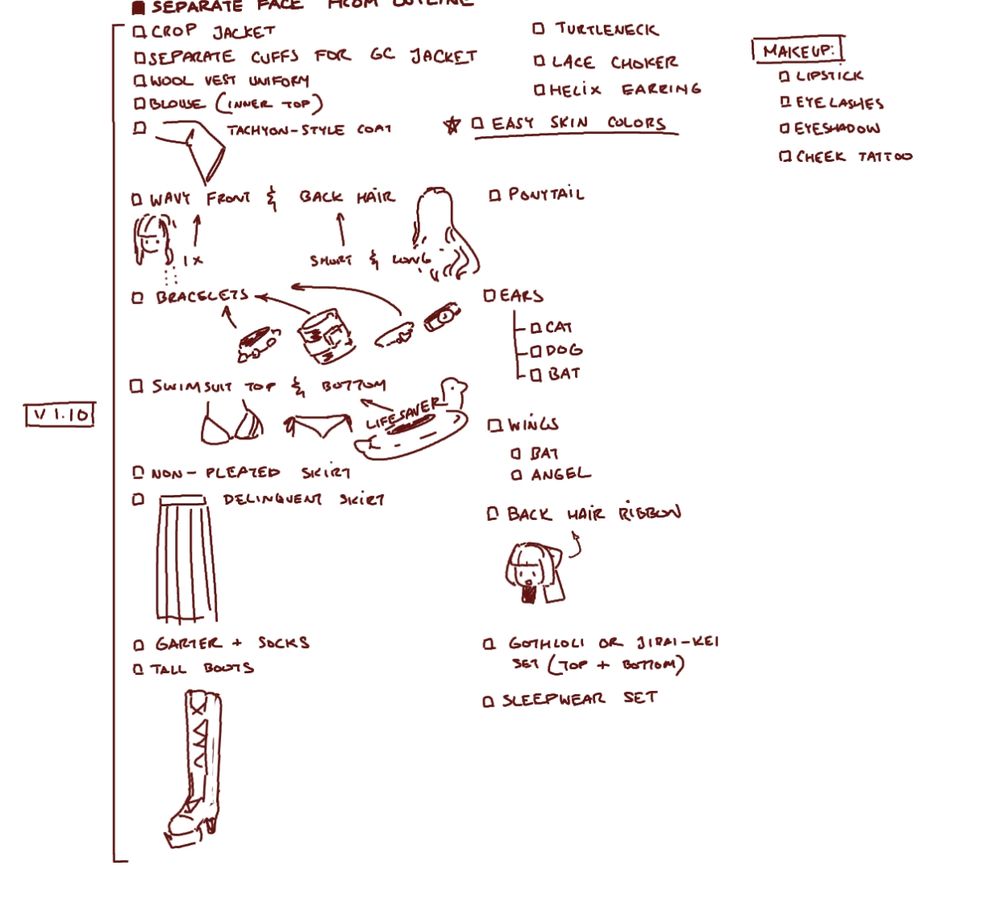 SEPARATE FACE FROM OUTLINE
CROP JACKET
SEPARATE CUFFS FOR GC JACKET
WOOL VEST UNIFORM
BLOUSE (INNER TOP)
TACHYON-STYLE COAT
WAVY FRONT & BACK HAIR
1X
SHORT & LONG
BRACELETS
SWIMSUIT TOP & BOTTOM
LIFESAVER
V 1.10
NON-PLEATED SKIRT
DELINQUENT SKIRT
GARTER + SOCKS
TALL BOOTS
TURTLENECK
LACE CHOKER
HELIX EARRING
EASY SKIN COLORS
PONYTAIL
EARS
CAT
DOG
BAT
WINGS
BAT
ANGEL
BACK HAIR RIBBON
GOTHLOLI OR JIRAI-KEI
SET (TOP + BOTTOM)
SLEEPWEAR SET
MAKEUP:
LIPSTICK
EYELASHES
EYESHADOW
CHEEK TATTOO